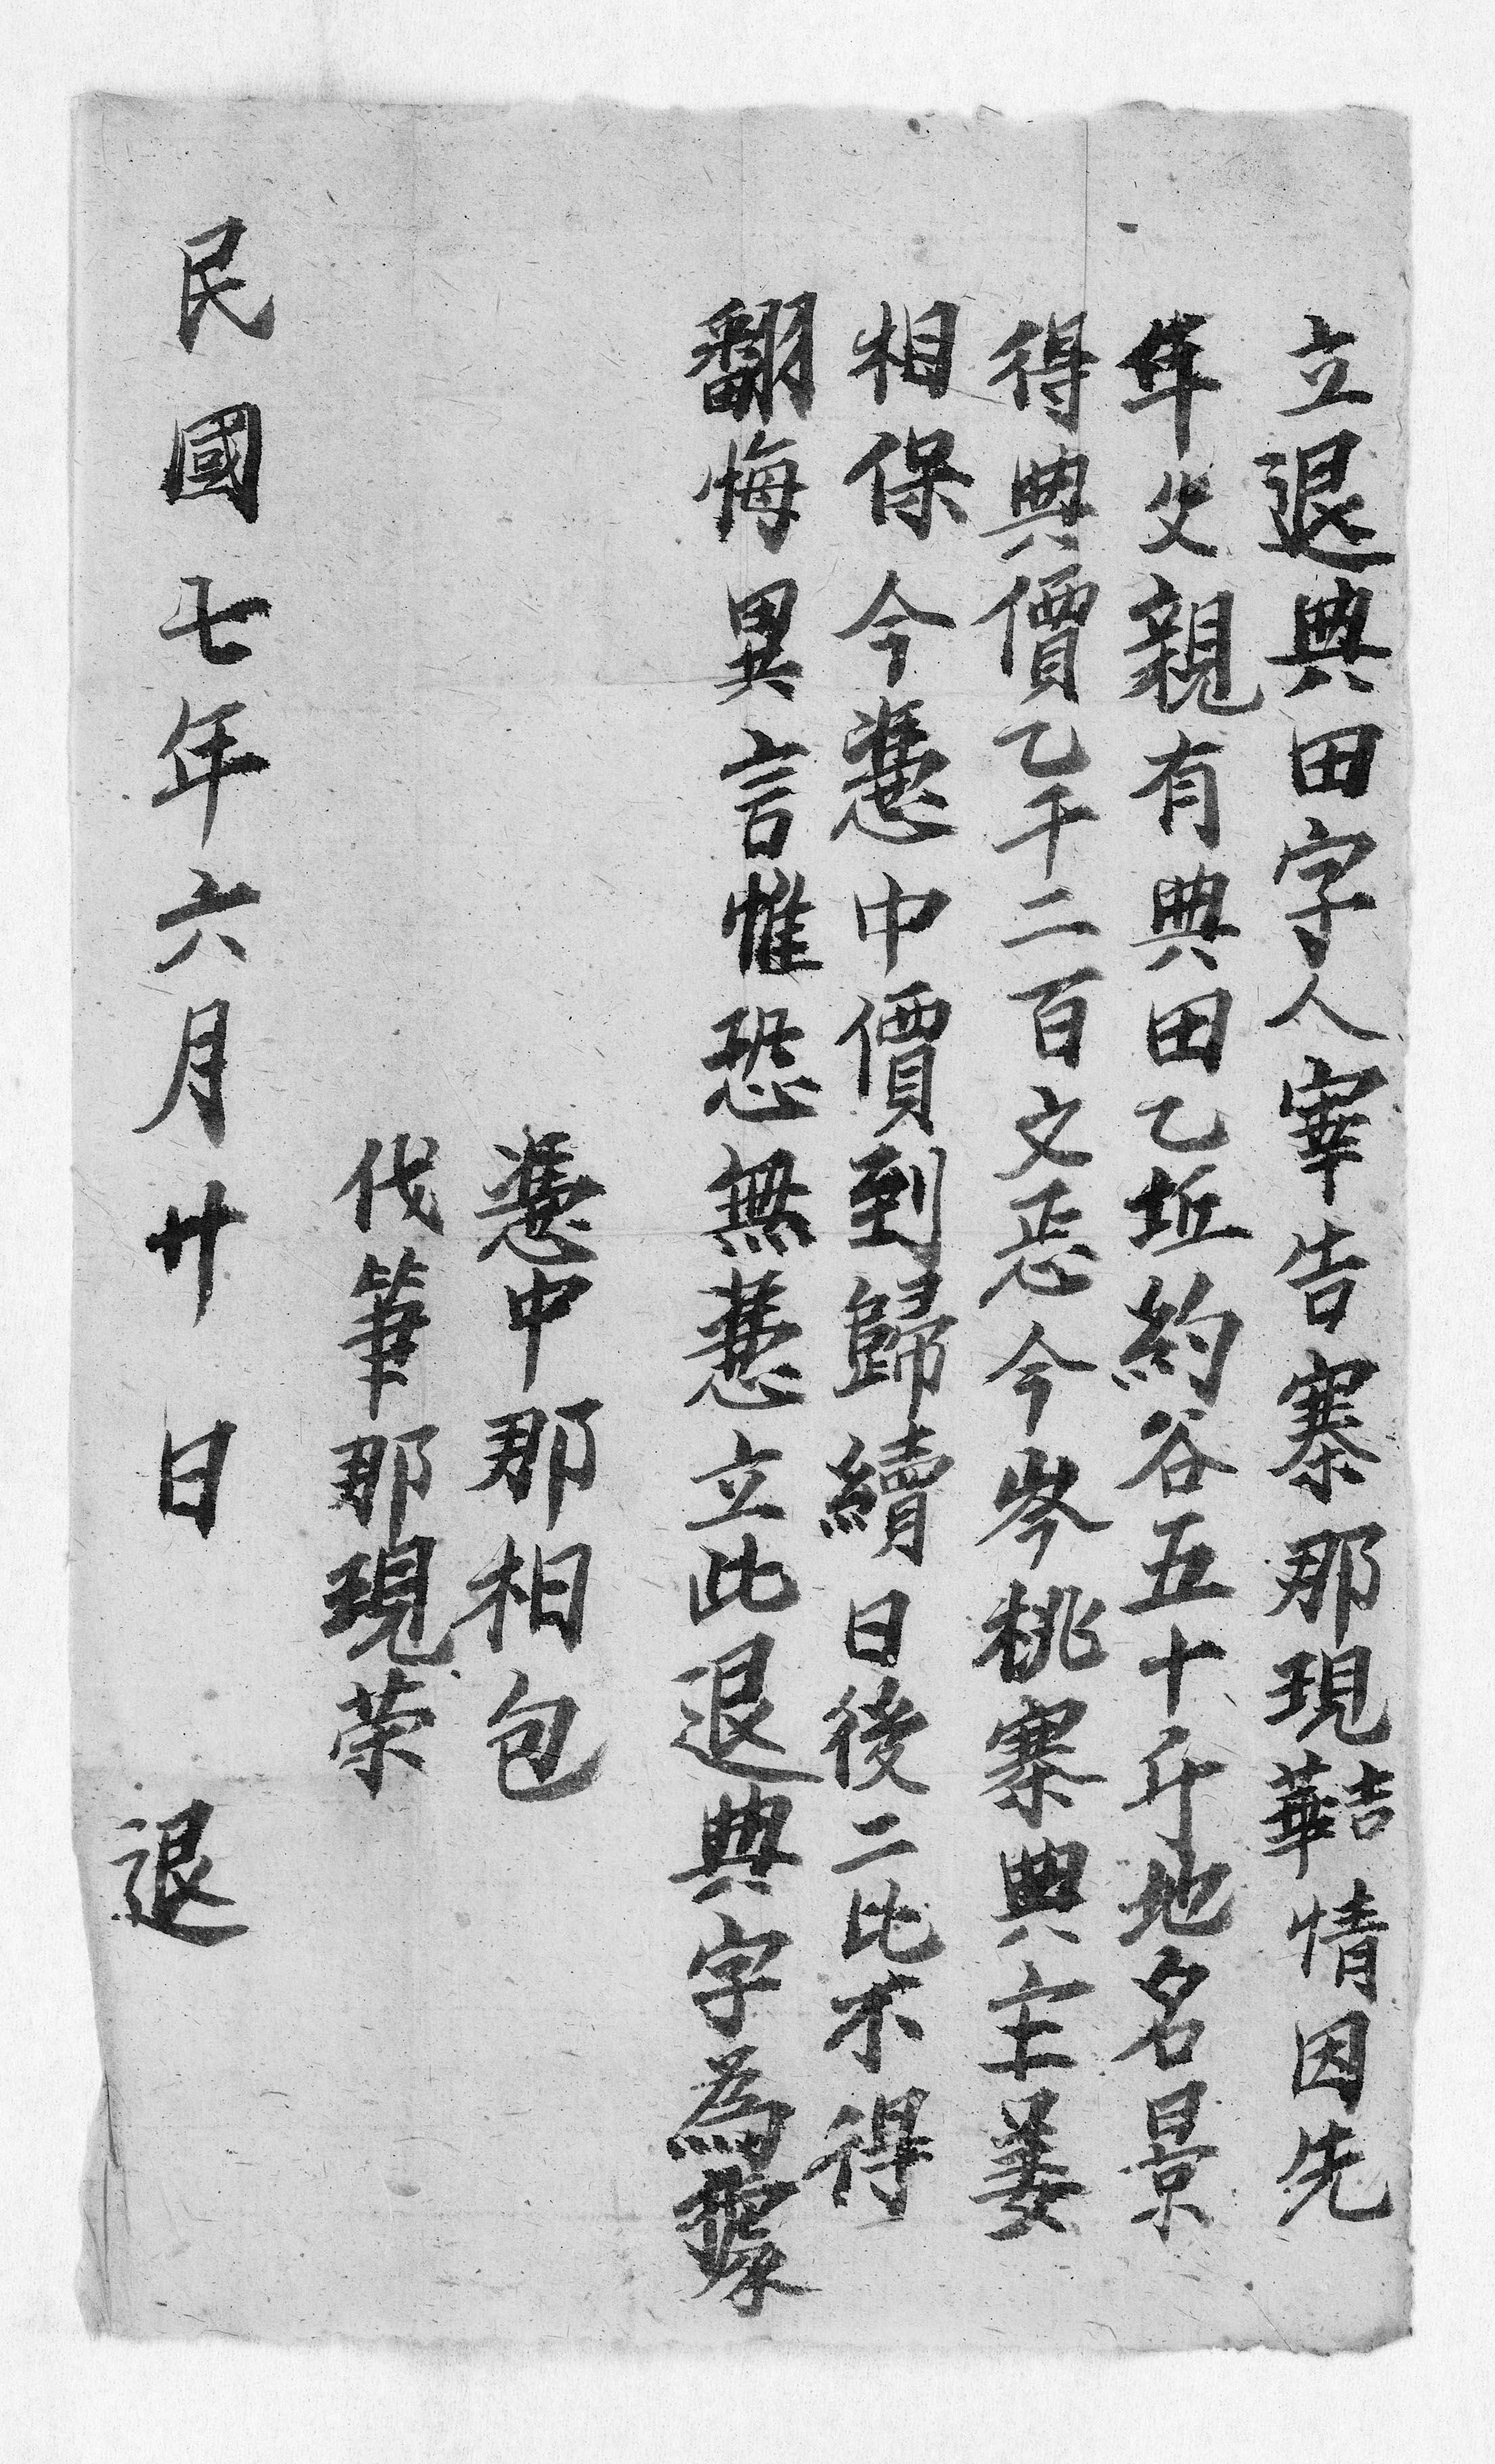 立退典田字人宰告寨那現華吉情因先
年父親有典田乙坵約谷五十斤地名景
得典價乙千二百文恁今岑桃寨典主姜
相保今憑中價到歸續日後二比不得
翻悔異言惟恐無憑立此退典字為據
憑中那相包
伐筆那現荣
民國七年六月廿日 退